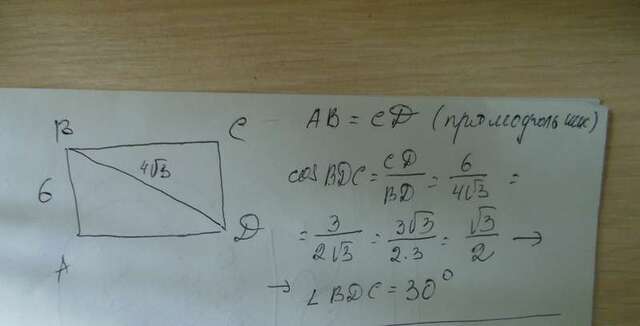 B
C
4√3
6
D
A
AB = CD (прямоугольник)
cos BDC = CD/BD = 6/4√3 =
= 3/2√3 = 3√3/2·3 = √3/2 →
→ ∠BDC = 30°